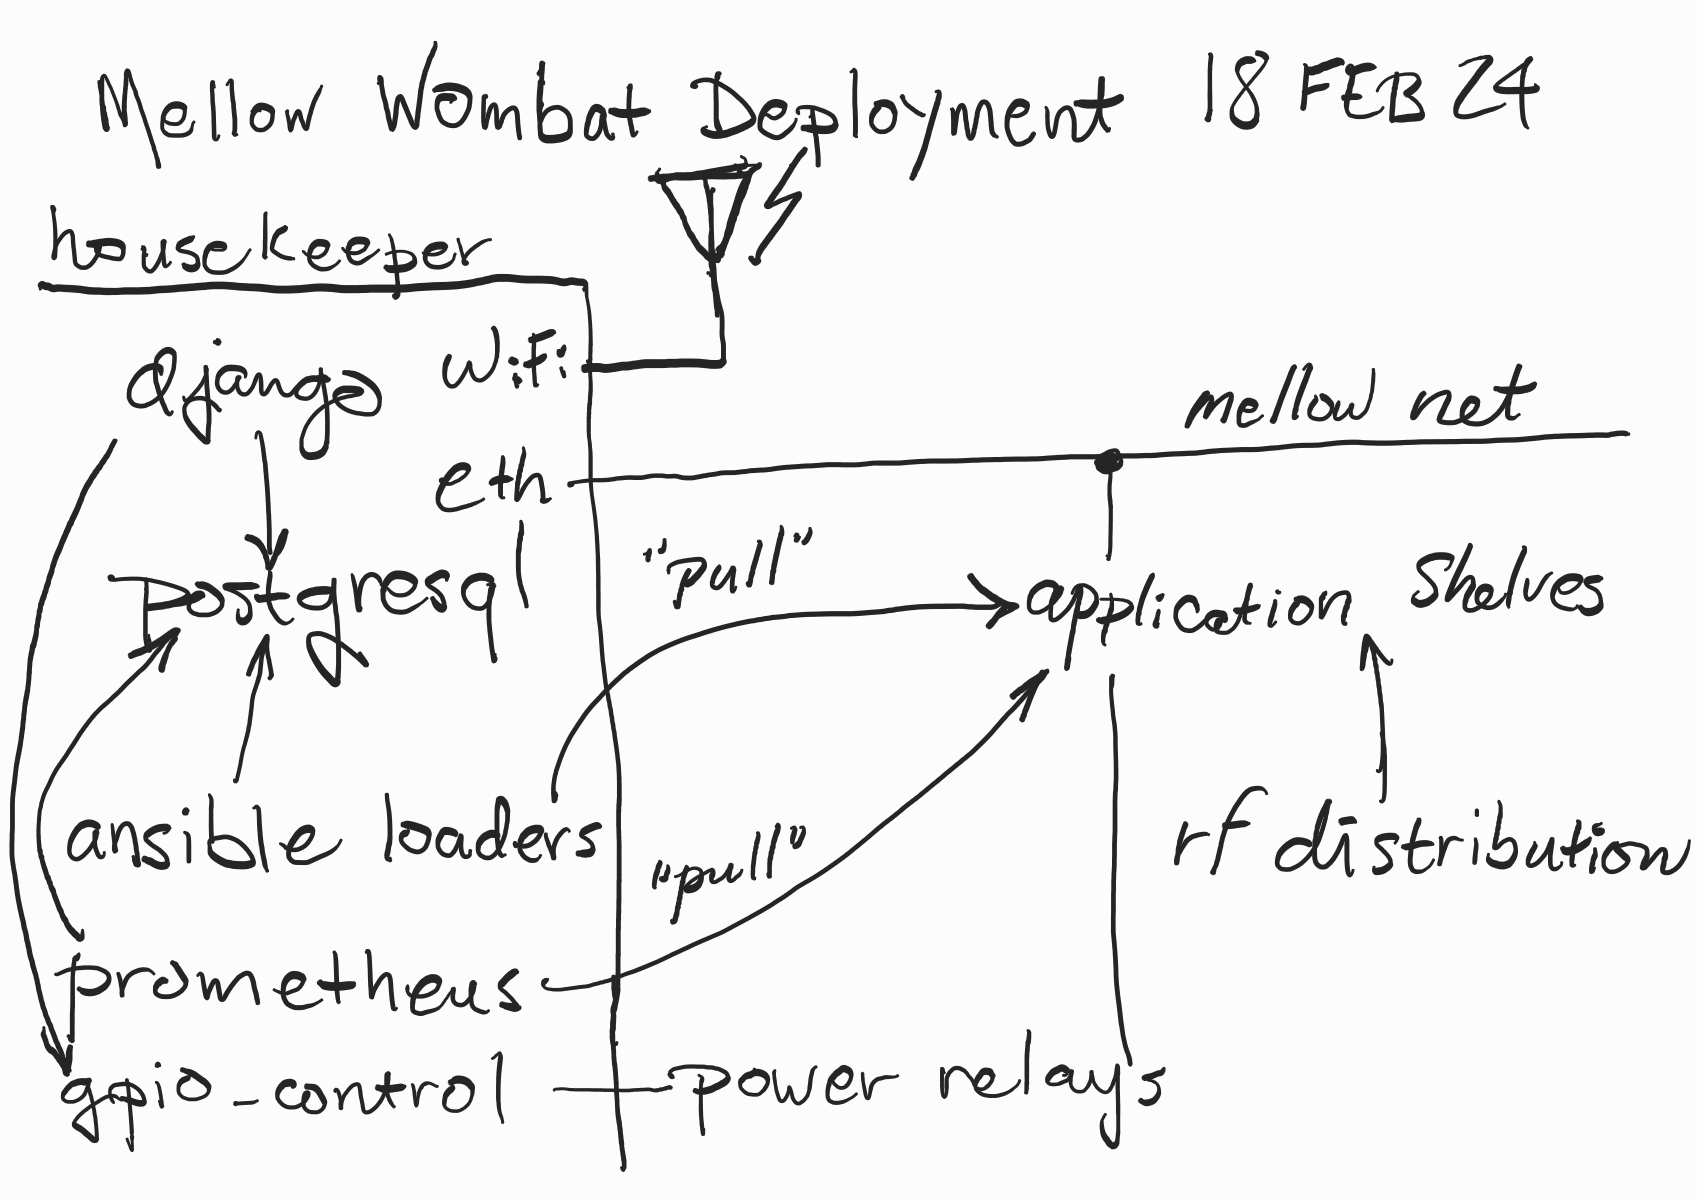 Mellow Wombat Deployment 18 FEB 24
housekeeper
django
WiFi
eth
mellow net
postgresql
"pull"
application shelves
ansible loaders
"pull"
rf distribution
prometheus
gpio-control
power relays